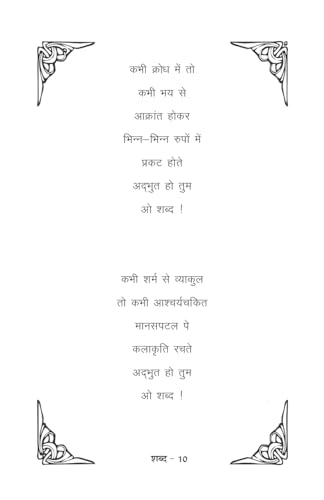 कभी क्रोध में तो
कभी भय से
आक्रांत होकर
भिन्न–भिन्न रुपों में
प्रकट होते
अद्‌भुत हो तुम
ओ शब्द !
कभी शर्म से व्याकुल
तो कभी आश्चर्यचकित
मानसपटल पे
कलाकृति रचते
अद्‌भुत हो तुम
ओ शब्द !
शब्द - 10